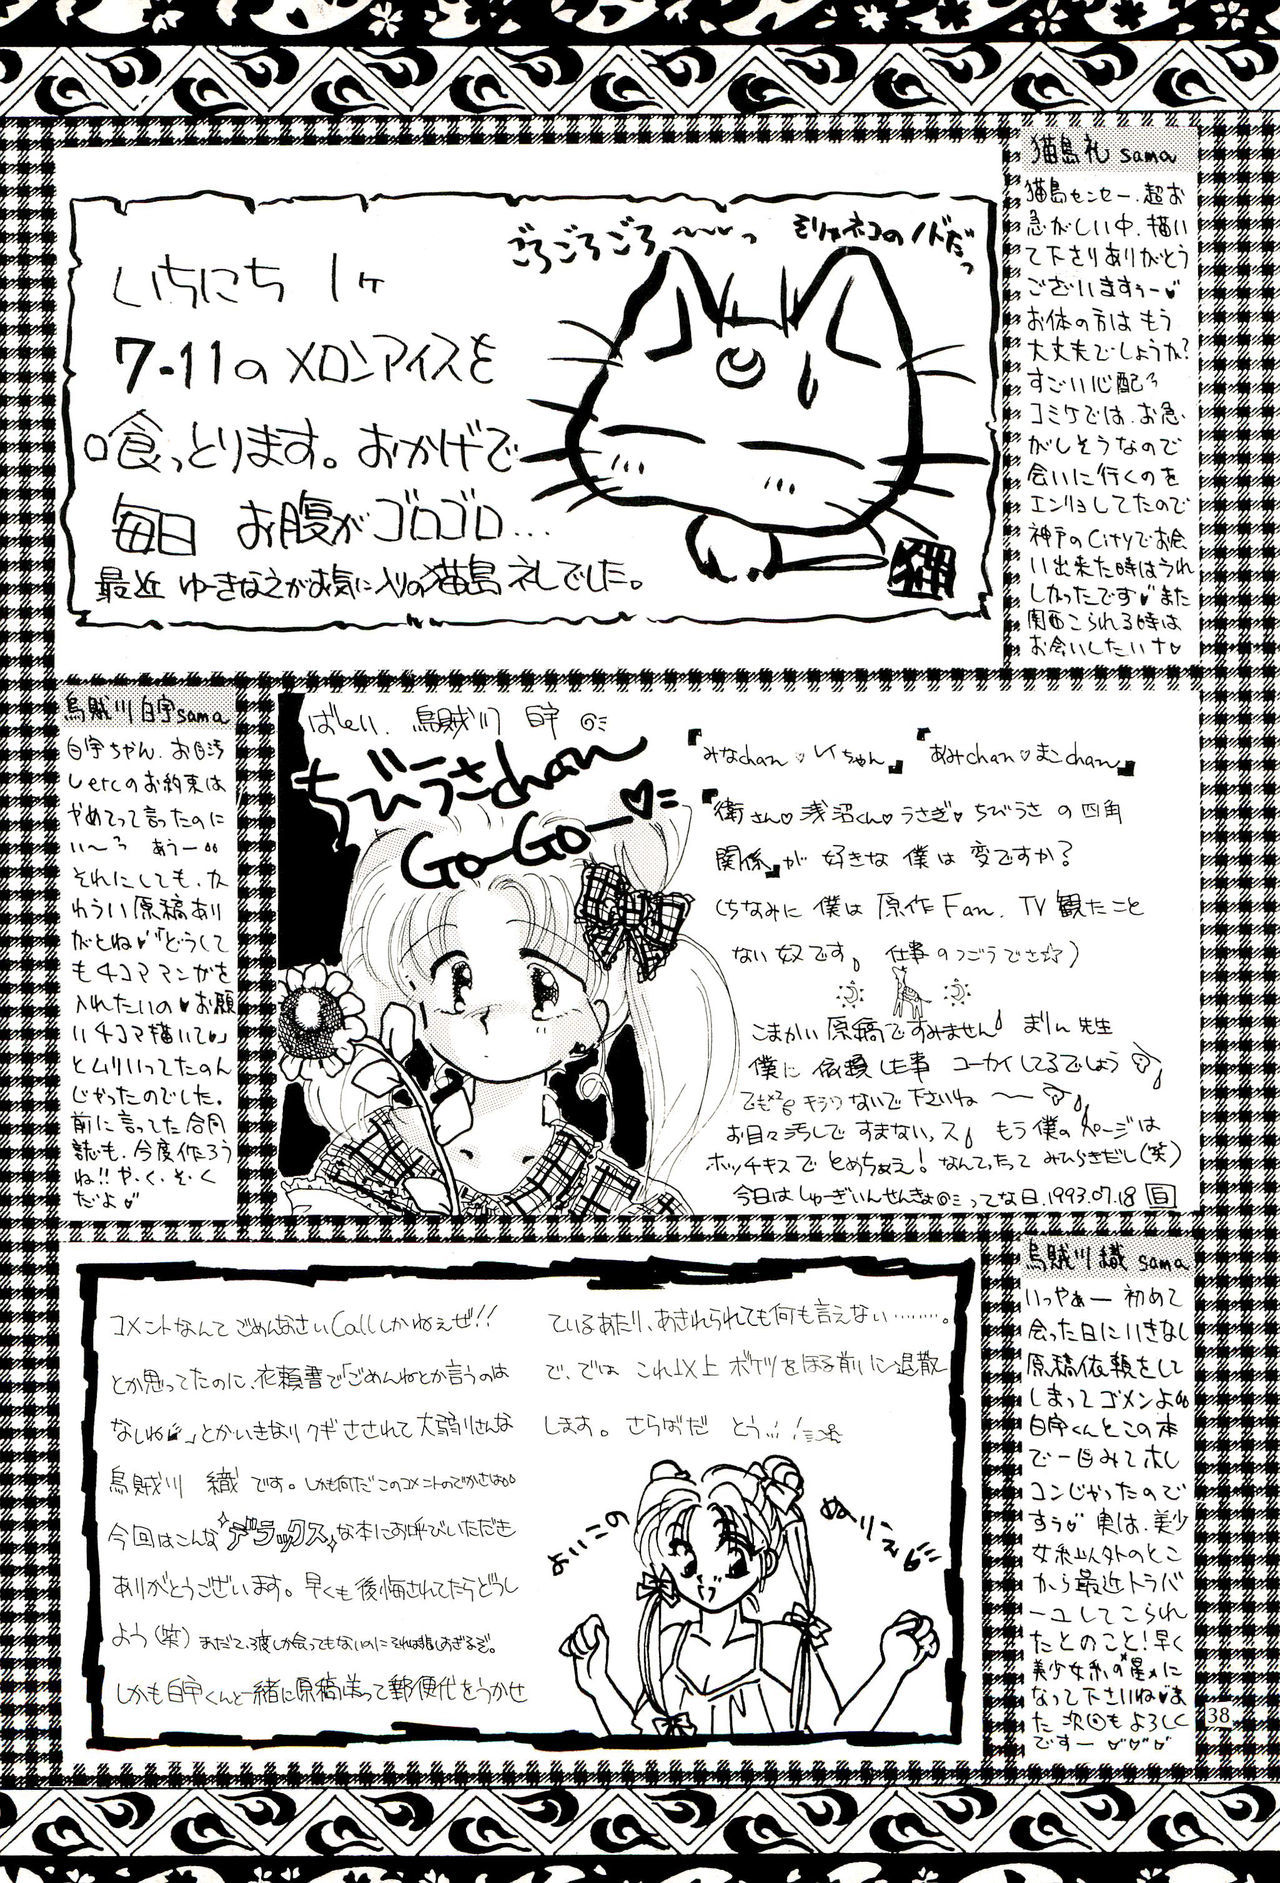 猫島礼 sama
猫島センセー、超お
急がしい中、描い
て下さりありがとう
ございますぅー♥
お体の方はもう
大丈夫でしょうか?
すごい心配〜
コミケでは、お急
がしそうなので
会いに行くのを
エンリョしてたので
神戸のCityでお会
い出来た時はうれ
しかったです♥また
関西こられる時は
お会いしたいナ♥
ごろごろごろ〜〜〜っ
そりゃネコのノドだっ
いちにち 1ヶ
7-11のメロンアイスを
喰っとります。おかげで
毎日 お腹がゴロゴロ…
最近 ゆーきなえがお気に入りの猫島礼でした。
烏賊川白宇sama
白宇ちゃん、お目汚
しetcのお約束は
やめてって言ったのに
い〜〜 あうー。。
それにしても、か
わうい原稿あり
がとね♥「どうして
も4コママンガを
入れたいの♥お願
い4コマ描いて♥」
とムリいってたのん
じゃったのでした。
前に言ってた合同
誌も、今度作ろう
ね!!や・く・そ・く
だよ♥
ばとい、烏賊川 白宇
ちびうさchan
Go-Go-♥
『みなchan♥レイちゃん』『あみchan♥まこchan』
『衛さん♥浅沼くん♥うさぎ♥ちびうさ の四角
関係』が 好きな 僕は 変ですか?
(ちなみに 僕は 原作Fan、TV観たこと
ない奴です。仕事のつごうでさ)
こまかい原稿ですみません。まりん先生
僕に 依頼した事 コーカイしてるでしょう
でも キラワないで下さいね〜
お目々汚しで すまないっス。もう僕のページは
ホッチキスで とめちゃえ!なんてったって みひらきだし(笑)
今日は しゅーぎいんせんきょ ってな日、1993.07.18 白
烏賊川織 sama
いっやぁー 初めて
会った日にいきなし
原稿依頼をして
しまってゴメンよ。。
白宇くんとこの本
で一目みてホレ
コンじゃったので
すぅ♥ 実は、美少
女系以外のとこ
から最近トラバ
ーユしてこられ
たとのこと!早く
美少女系の"星"に
なって下さいね♥ま
た次回もよろしく
ですー♥♥♥
コメントなんて ごめんなさいCallしかねぇぜ!!
とか思ってたのに、依頼書で「ごめんねとか言うのは
なしね♥」とかいきなりクギさされて大弱りさんな
烏賊川 織です。しかも何だこのコメントのでかさは。。
今回はこんなデラックスな本にお呼びいただき
ありがとうございます。早くも後悔されてたらどうし
よう(笑) まだ1、2度しか会ってもないのにそれは悲しすぎるぞ。
しかも白宇くんと一緒に原稿送って郵便代をうかせ
ているあたり、あきれられても何も言えない………。
で、では これ以上 ボケツをほる前に退散
します。さらばだ とうっ!
よいこの
ぬりえ
38